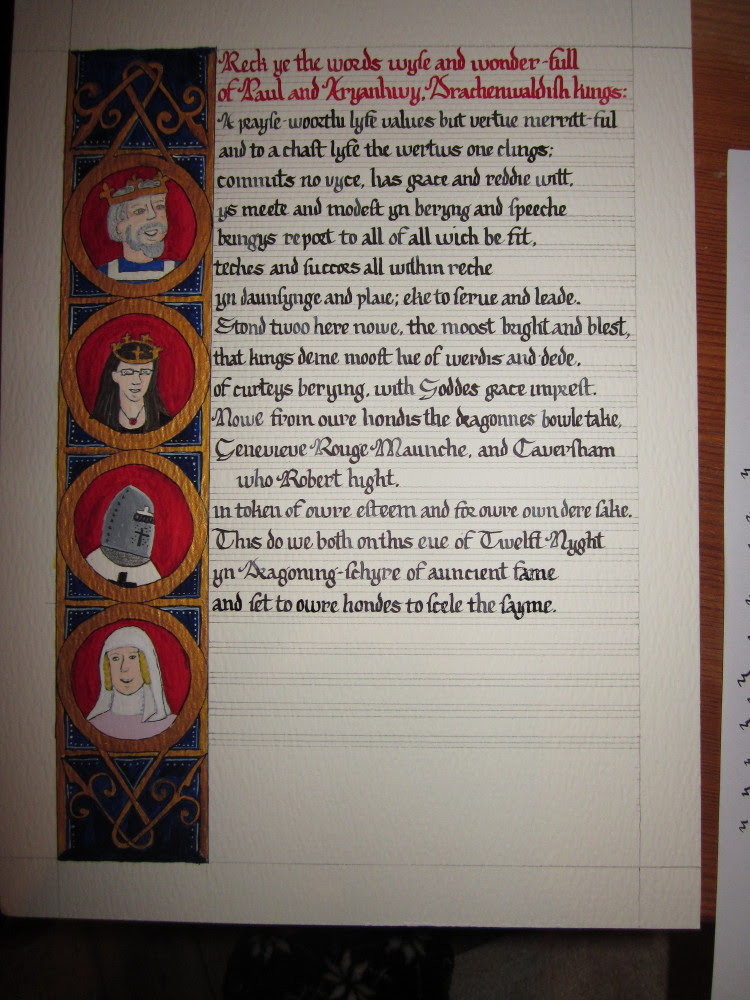 Reck ye the words wyse and wonder-full
of Paul and Aryanhwy, Drachenwaldish kings:
A prayse-worthi lyfe values but vertue merritt-ful
and to a chast lyfe the wertws one clings;
commits no vyce, has grace and reddie witt,
ys meete and modest yn beryng and speeche
bringys report to all of all wich be fit,
teches and succors all within reche
yn daunsynge and plaie; eke to serue and leade.
Stond twoo here nowe, the moost bright and blest,
that kings deme moost hue of werdis and dede,
of curteys berying, with Goddes grace imprest.
Nowe from oure hondis the dragonnes bowle take,
Genevieve Rouge-Maunche, and Caversham
who Robert hight,
in token of owre esteem and for owre own dere sake.
This do we both on this eue of Twelft-Nyght
yn Dragoning-schyre of auncient fame
and set to owre hondes to scele the sayme.